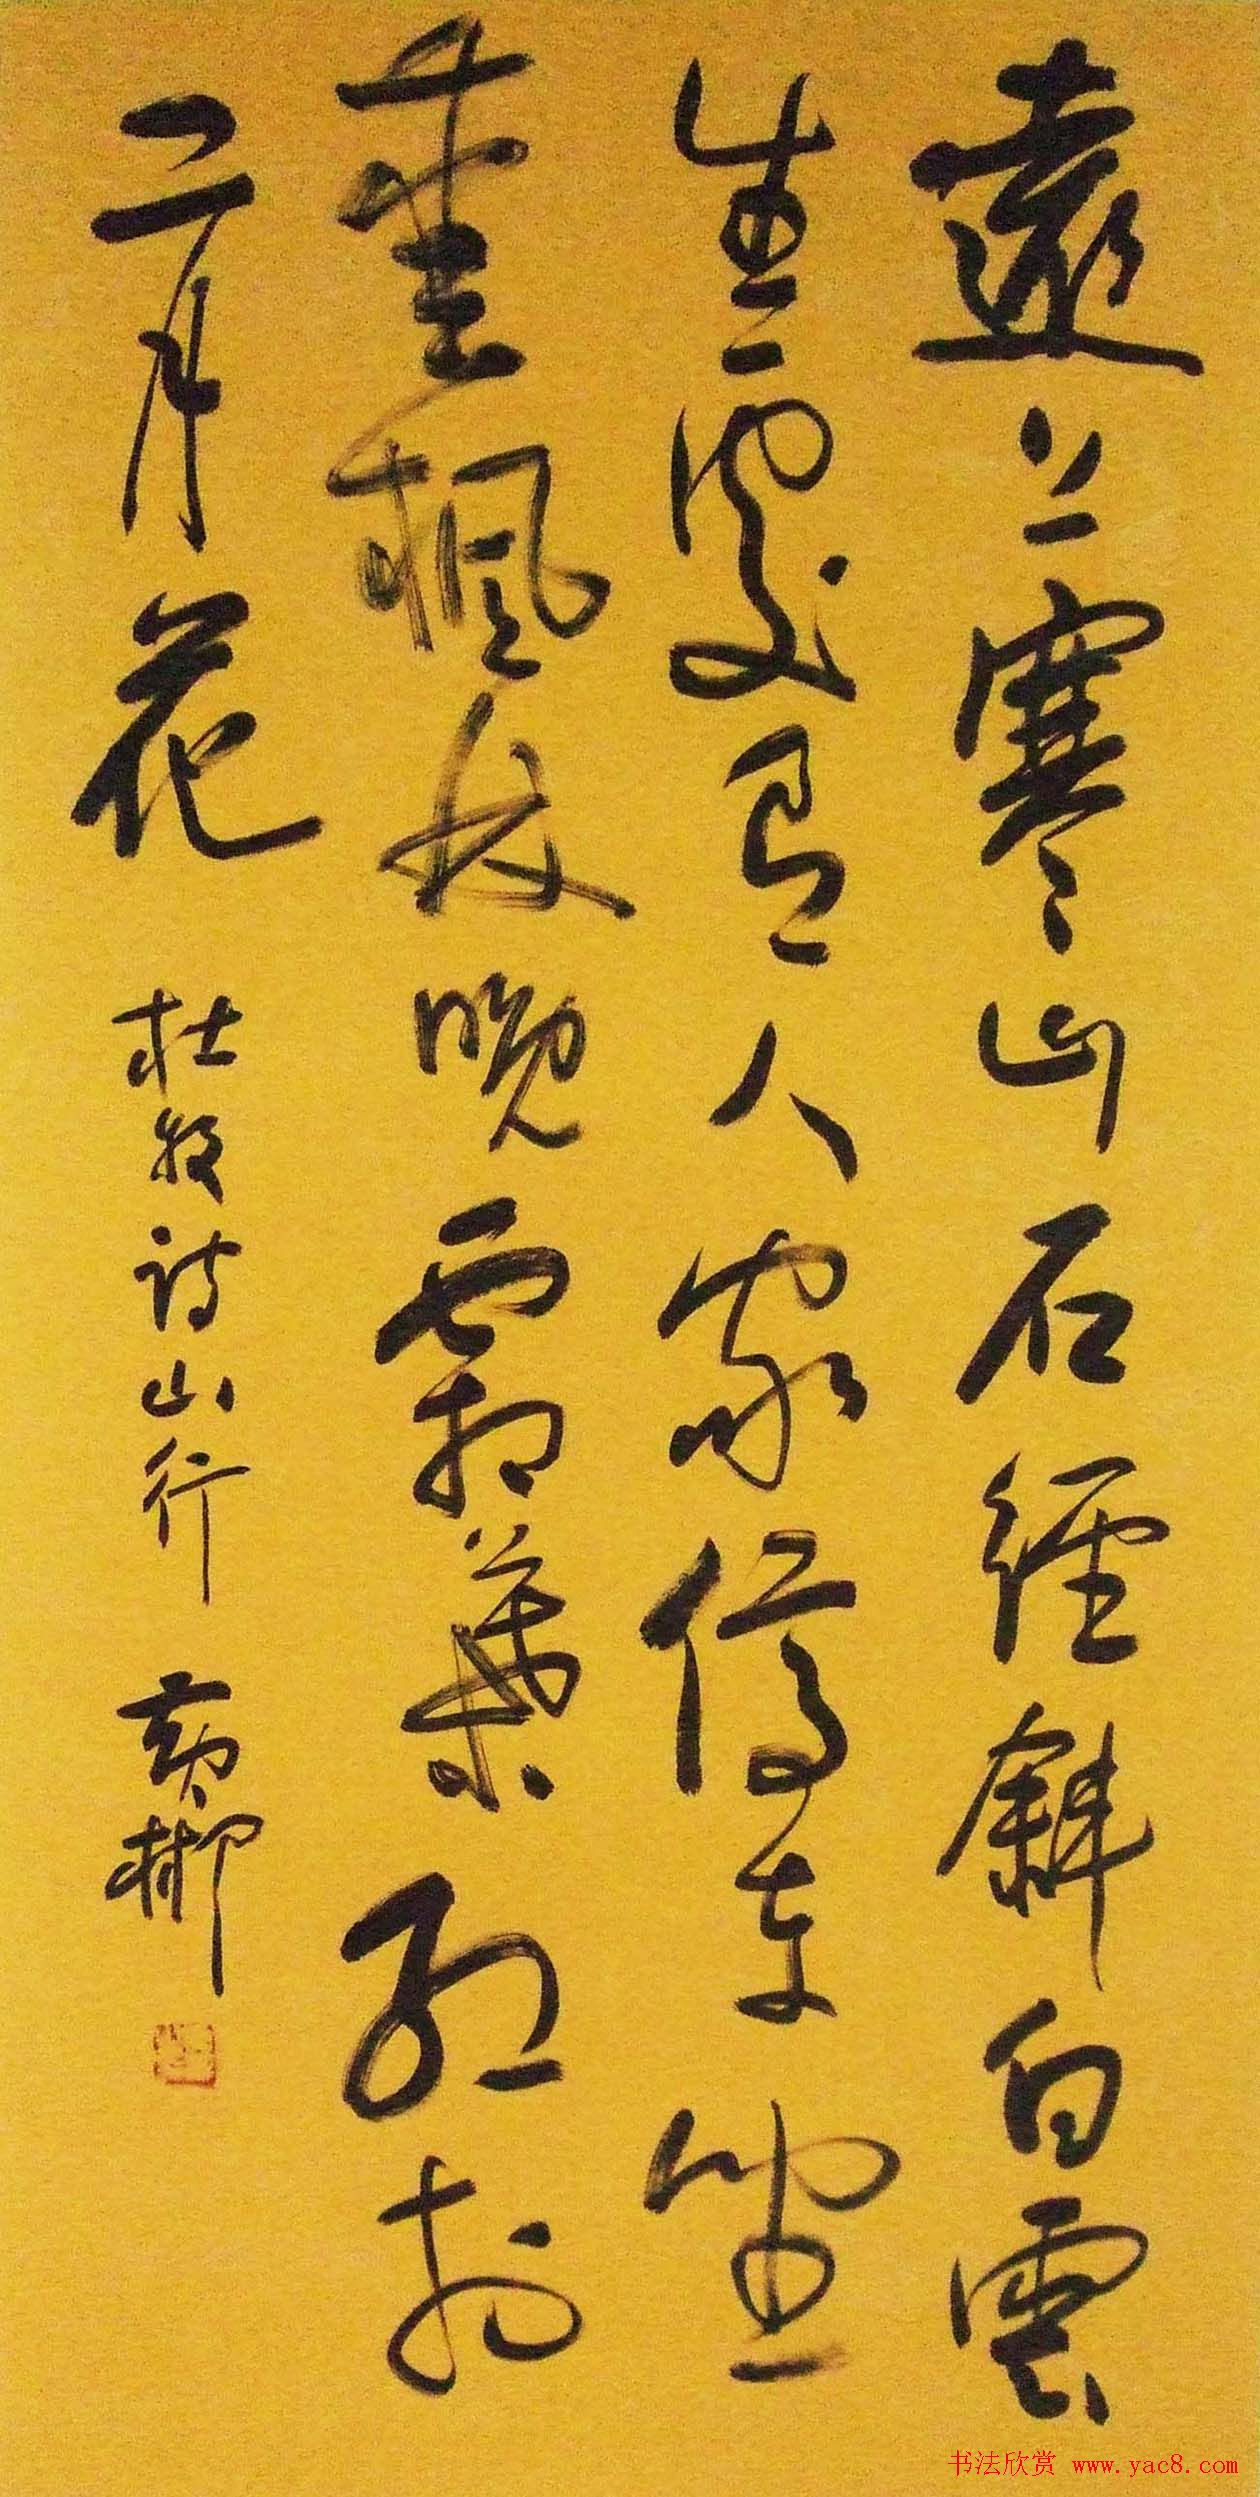 遠上寒山石徑斜白雲
生處有人家停車坐
愛楓林晚霜葉紅於
二月花 杜牧詩山行
书法欣赏 www.yac8.com